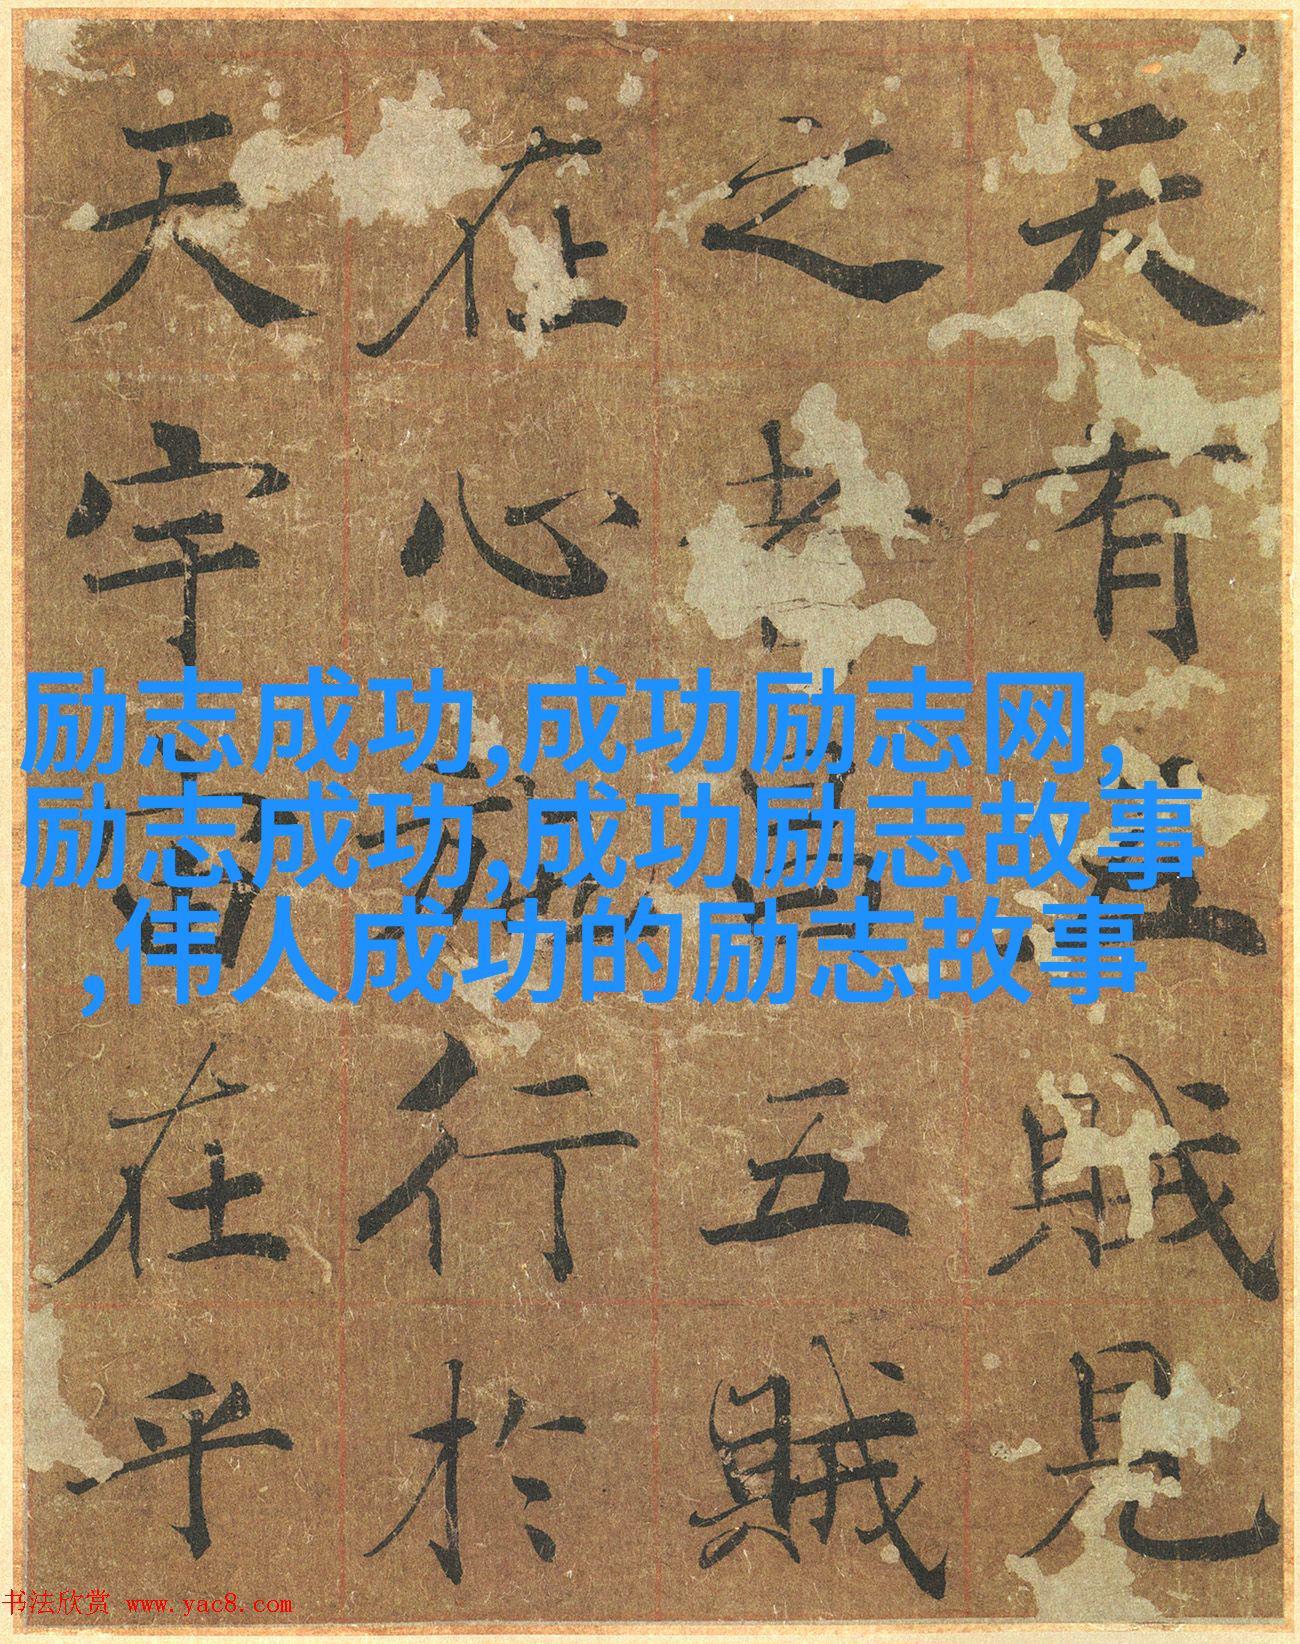 天有五賊見
之者昌五賊
在心施行於
天宇宙在乎
励志成功,成功励志网,
励志成功,成功励志故事
,伟人成功的励志故事
书法欣赏 www.yac8.com